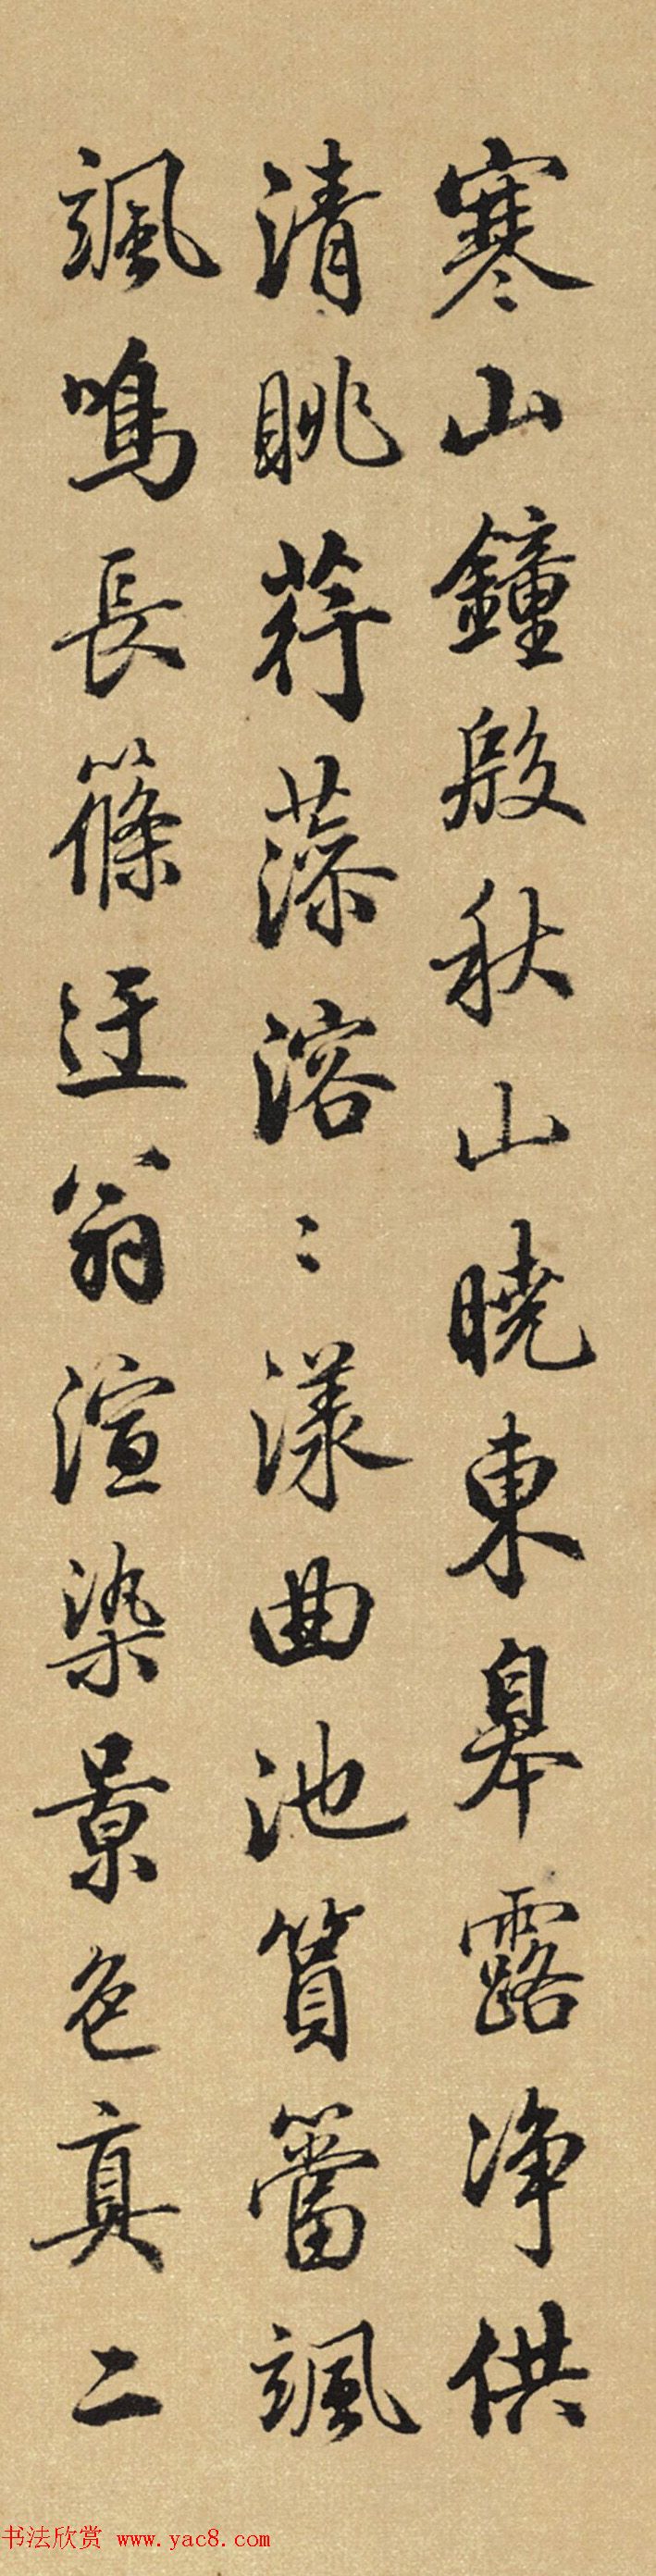 寒山鐘殷秋山曉東皋露淨供
清眺荇藻溶〻漾曲池篔簹颯
颯鳴長篠迂翁渲染景色真二
书法欣赏 www.yac8.com